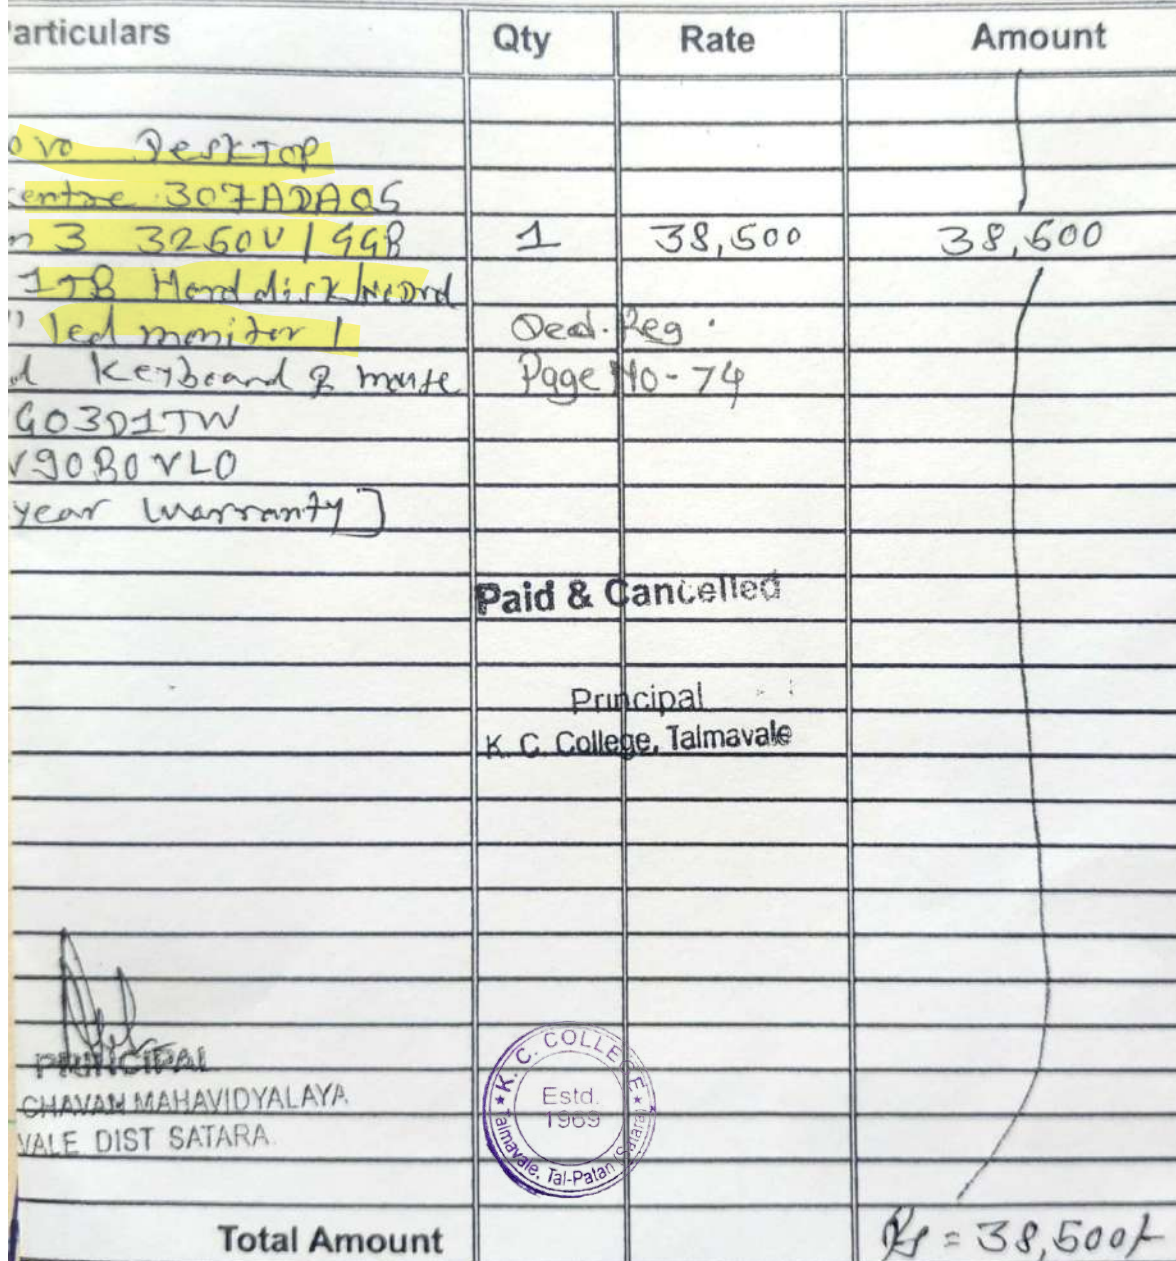 articulars Qty Rate Amount
ovo Desktop
entre 307ADA05
n 3 3250U / 4GB 1 38,500 38,500
1TB Hard disk /
" led monitor / Dead. Reg.
d Keyboard & mouse Page No - 74
G03D1TW
V90B0VL0
year warranty]
Paid & Cancelled
Principal
K. C. College, Talmavale
PRINCIPAL
CHAVAN MAHAVIDYALAYA
VALE DIST SATARA.
K. C. COLLEGE
Estd.
1969
Talmavale, Tal-Patan (Satara)
Total Amount Rs = 38,500/-